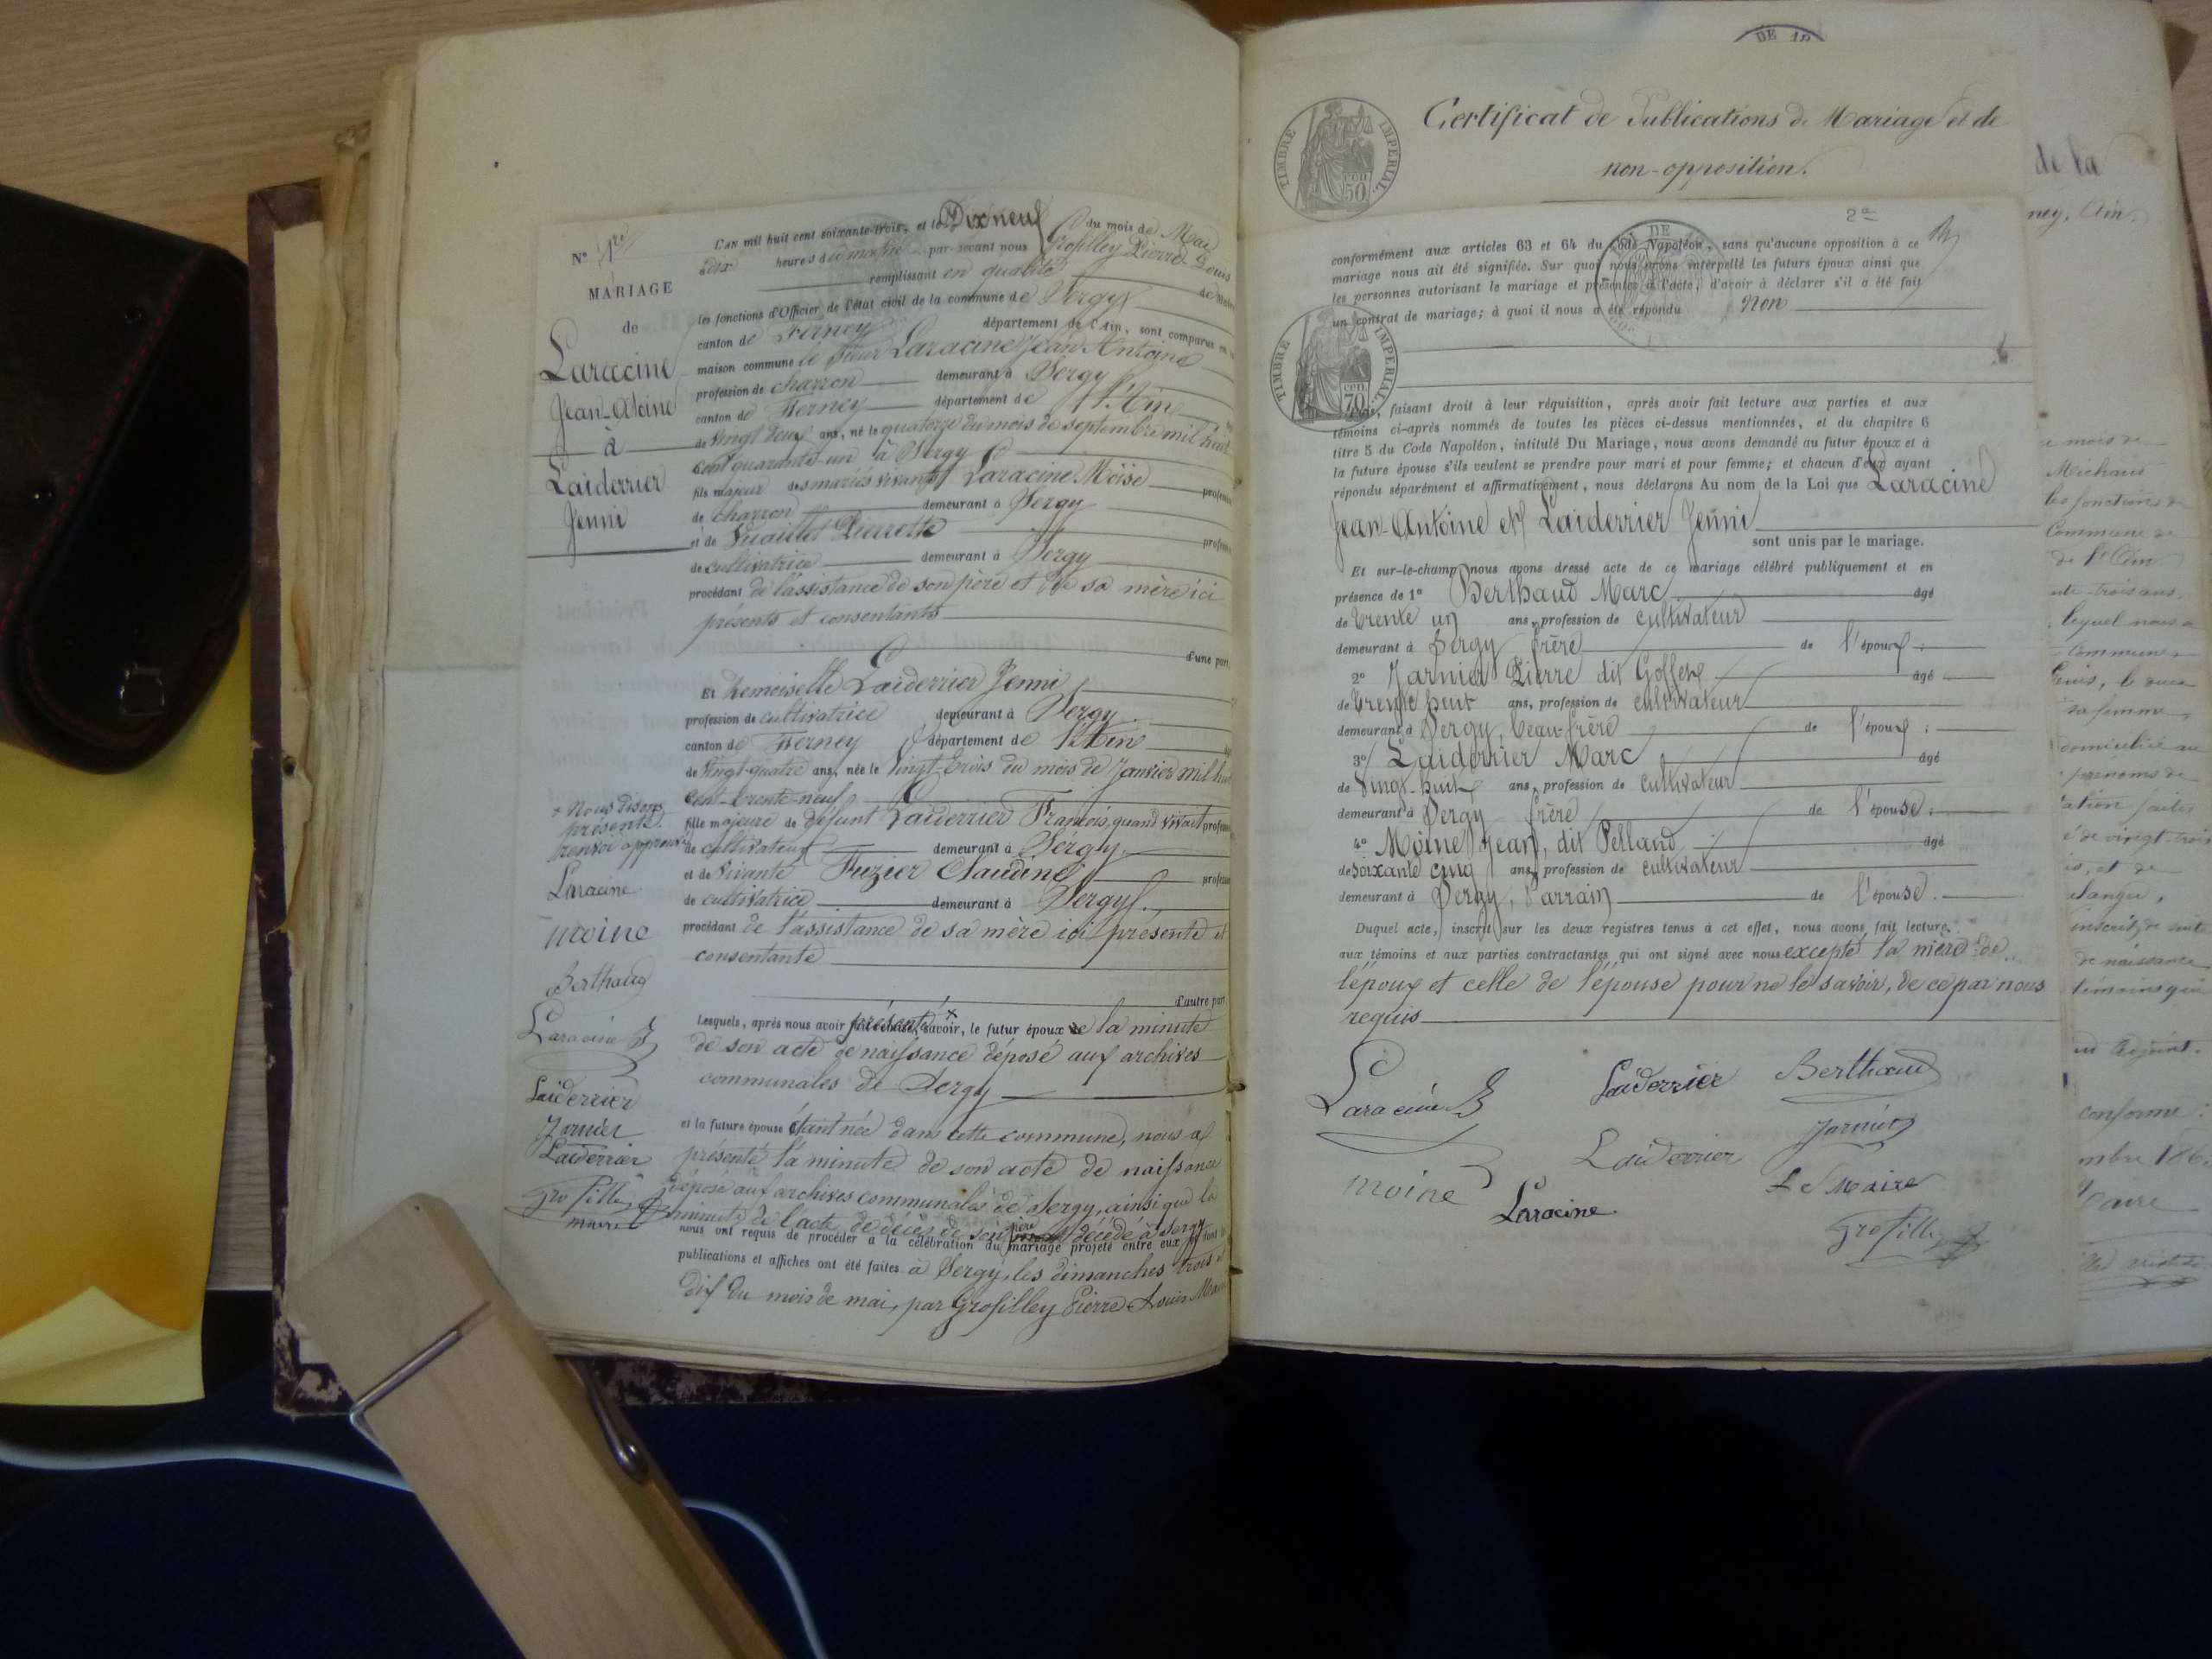 N° 1re
MARIAGE
de
Laracine
Jean-Antoine
à
Laiderrier
Jenni
L'an mil huit cent soixante-trois, et le Dix neuf du mois de Mai
à dix heures du matin par-devant nous Grosfilley Pierre-Louis
remplissant en qualité de Maire
les fonctions d'Officier de l'état civil de la commune de Sergy
canton de Ferney département de l'Ain, sont comparus en la
maison commune le Sieur Laracine Jean Antoine
profession de charron demeurant à Sergy
canton de Ferney département de l'Ain
de vingt deux ans, né le quatorze du mois de septembre mil huit
cent quarante-un à Sergy
fils majeur des mariés vivants Laracine Moïse profession
de charron demeurant à Sergy
et de Vuaillet Pierrette profession
de cultivatrice demeurant à Sergy
procédant de l'assistance de son père et de sa mère ici
présents et consentants
d'une part,
Et Demoiselle Laiderrier Jenni
profession de cultivatrice demeurant à Sergy
canton de Ferney département de l'Ain
de vingt-quatre ans, née le vingt-trois du mois de Janvier mil huit
cent-trente-neuf
fille majeure de défunt Laiderrier François, quand vivait profession
de cultivateur demeurant à Sergy
et de vivante Fuzier Claudine profession
de cultivatrice demeurant à Sergy
procédant de l'assistance de sa mère ici présente et
consentante
d'autre part,
Lesquels, après nous avoir présenté × savoir, le futur époux la minute
de son acte de naissance déposé aux archives
communales de Sergy
et la future épouse étant née dans cette commune, nous a
présenté la minute de son acte de naissance
déposé aux archives communales de Sergy, ainsi que la
minute de l'acte de décès de son père décédé à Sergy
nous ont requis de procéder à la célébration du mariage projeté entre eux
publications et affiches ont été faites à Sergy, les dimanches trois et
dix du mois de mai, par Grosfilley Pierre Louis Maire
× Nous disons
présenté.
renvoi approuvé
Laracine
moine
Berthaud
Laracine J
Laiderrier
Jarnier
Laiderrier
Grosfilley
maire
Certificat de Publications de Mariage et de
non-opposition.
TIMBRE IMPERIAL
cen 50
2e
conformément aux articles 63 et 64 du Code Napoléon, sans qu'aucune opposition à ce
mariage nous ait été signifiée. Sur quoi nous avons interpellé les futurs époux ainsi que
les personnes autorisant le mariage et présentes à l'acte, d'avoir à déclarer s'il a été fait
un contrat de mariage; à quoi il nous a été répondu Non
TIMBRE IMPERIAL
cen. 70
faisant droit à leur réquisition, après avoir fait lecture aux parties et aux
témoins ci-après nommés de toutes les pièces ci-dessus mentionnées, et du chapitre 6
titre 5 du Code Napoléon, intitulé Du Mariage, nous avons demandé au futur époux et à
la future épouse s'ils veulent se prendre pour mari et pour femme; et chacun d'eux ayant
répondu séparément et affirmativement, nous déclarons Au nom de la Loi que Laracine
Jean-Antoine et Laiderrier Jenni
sont unis par le mariage.
Et sur-le-champ nous avons dressé acte de ce mariage célébré publiquement et en
présence de 1° Berthaud Marc âgé
de trente un ans, profession de cultivateur
demeurant à Sergy frère de l'époux
2° Jarnier Pierre dit Goffet âgé
de trente huit ans, profession de cultivateur
demeurant à Sergy, beau-frère de l'époux
3° Laiderrier Marc âgé
de vingt-huit ans, profession de cultivateur
demeurant à Sergy frère de l'épouse
4° Moine Jean, dit Pelland âgé
de soixante cinq ans, profession de cultivateur
demeurant à Sergy, Parrain de l'épouse
Duquel acte, inscrit sur les deux registres tenus à cet effet, nous avons fait lecture
aux témoins et aux parties contractantes qui ont signé avec nous excepté la mère de
l'époux et celle de l'épouse pour ne le savoir, de ce par nous
requis
Laracine J Laiderrier Berthaud
Laiderrier Jarnier
moine Laracine Le Maire
Grosfilley
de la
ney, Ain.
mois de
Michaud
les fonctions de
Commune de
de l'Ain
lequel nous a
sa femme,
prénoms de
de vingt-trois
de naissance
témoins qui
conforme